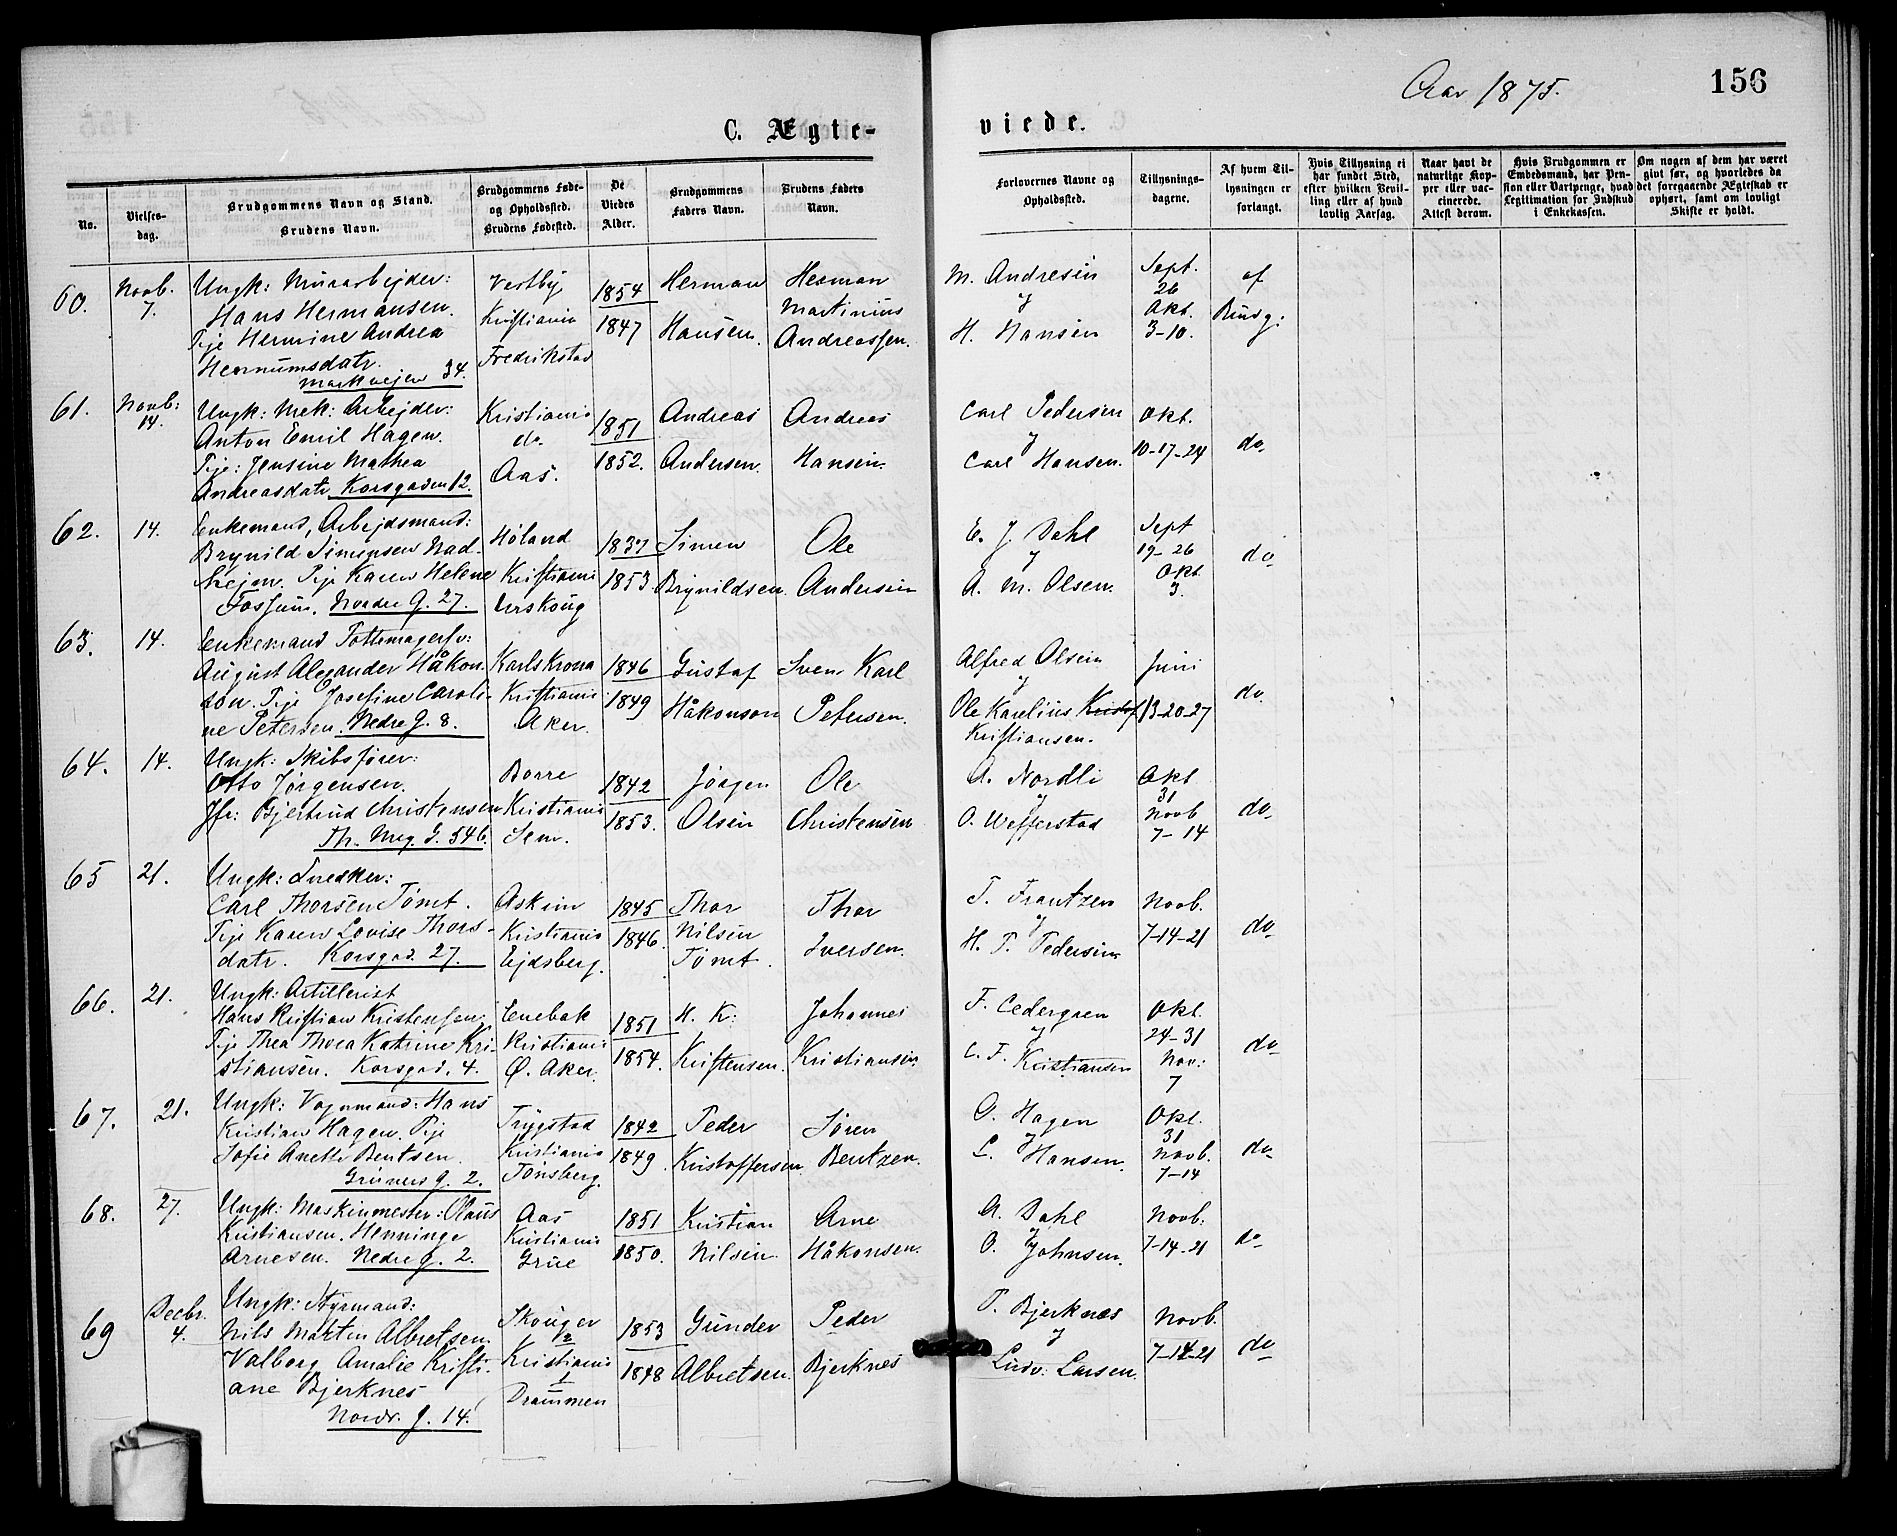 Aar 1875.
156
C. Ægte-
viede.
No.
Vielses-
dag.
Brudgommens Navn og Stand.
Brudens Navn.
Brudgommens Føde-
og Opholdssted.
Brudens Fødested.
De
Viedes
Alder.
Brudgommens
Faders Navn.
Brudens Faders
Navn.
Forlovernes Navne og
Opholdssted.
Tillysnings-
dagene.
Af hvem Til-
lysningen er
forlangt.
Hvis Tillysning ei
har fundet Sted,
efter hvilken Bevil-
ling eller af hvad
lovlig Aarsag.
Naar havt de
naturlige Kop-
per eller vac-
cinerede.
Attest derom.
Hvis Brudgommen er
Embedsmand, har Pen-
sion eller Vartpenge, hvad
Legitimation for Indskud
i Enkekassen.
Om nogen af dem har været
givt før, og hvorledes da
det foregaaende Ægteskab er
ophørt, samt om lovligt
Skifte er holdt.
60.
Novb.
7.
Ungk: Murarbejder:
Hans Hermansen.
Pije Hermine Andrea
Hermumsdatr.
Markvejen 34.
Vestby
Kristiania
Fredrikstad
1854
1847
Herman
Hansen.
Herman
Martinius
Andreassen.
M. Andresen
&
H. Hansen
Sept.
26
Okt.
3-10.
af
Brudg:
61.
Novb:
14.
Ungk: Mek: Arbejder:
Anton Emil Hagen.
Pije: Jensine Mathea
Andreasdatr. Korsgaden 12.
Kristiania
do
Aas.
1851
1852.
Andreas
Andersen.
Andreas
Hansen.
Carl Pedersen
&
Carl Hansen.
Okt.
10-17-24
do
62.
14.
Enkemand, Arbejdsmand:
Brynild Simensen Nad-
Pije Karen Helene
Fossum. Nordre G. 27.
Høland
Kristiania
Urskoug
1837
1853
Simen
Brynildsen.
Ole
Andersen
E. J. Dahl
&
A. M. Olsen.
Sept
19-26
Okt.
3.
do
63.
14.
Enkemand Pottemagersv:
August Alexander Håkon-
son. Pije Josefine Caroli-
ne Petersen. Nedre G. 8.
Karlskrona
Kristiania
Aker.
1846
1849
Gustaf
Håkonson
Sven Karl
Petersen.
Alfred Olsen
&
Ole Karelius Kristof
Kristiansen.
Juni
13-20-27
do
64.
14.
Ungk: Skibsfører:
Otto Jørgensen.
Jfr: Gjertrud Christensen
Th. Mey. G. 54b.
Borre
Kristiania
Sem.
1842
1853.
Jørgen
Olsen
Ole
Christensen
A. Nordli
&
O. Wefferstad
Okt
31
Novb
7-14
do
65
21.
Ungk: Snedker:
Carl Thorsen Tømt.
Pije Karen Lovise Thors-
datr. Korsgad. 27.
Askim
Kristiania
Ejdsberg.
1845
1846.
Thor
Nilsen
Tømt.
Thor
Iversen.
T. Frantzen
&
H. P. Pedersen
Novb.
7-14-21
do
66.
21.
Ungk: Artillerist
Hans Kristian Kristensen.
Pije Thea Thora Katrine Kri-
stiansen. Korsgad. 4.
Enebak
Kristiania
Ø. Aker.
1851
1854.
H. K:
Kristensen.
Johannes
Kristiansen.
F. Cedergren
&
C. F. Kristiansen
Okt.
24-31
Nov:
7
do
67.
21.
Ungk: Vognmand: Hans
Kristian Hagen. Pije
Sofie Anette Bentsen.
Grüners g. 2.
Trygstad
Kristiania
Tønsberg.
1842
1849.
Peder
Kristoffersen.
Søren
Bentzen.
O. Hagen
&
L. Hansen.
Okt.
31
Novb.
7-14
do
68.
27.
Ungk: Maskinmester: Olaus
Kristiansen. Henninge
Arnesen. Nedre g. 2.
Aas
Kristiania
Grue
1851
1850.
Kristian
Nilsen.
Arne
Håkonsen.
A. Dahl
&
O. Johnsen.
Novb.
7-14-21
do
69
Decbr.
4.
Ungk: Styrmand:
Nils Martin Albretsen.
Valborg Amalie Kristi-
ane Bjerknes
Nordr. g. 14.
Skouger
2
Kristiania
1
Drammen
1853
1848
Gunder
Albretsen.
Peder
Bjerknes
P. Bjerknes
&
Ludv: Larsen.
Novb.
7-14-21
do